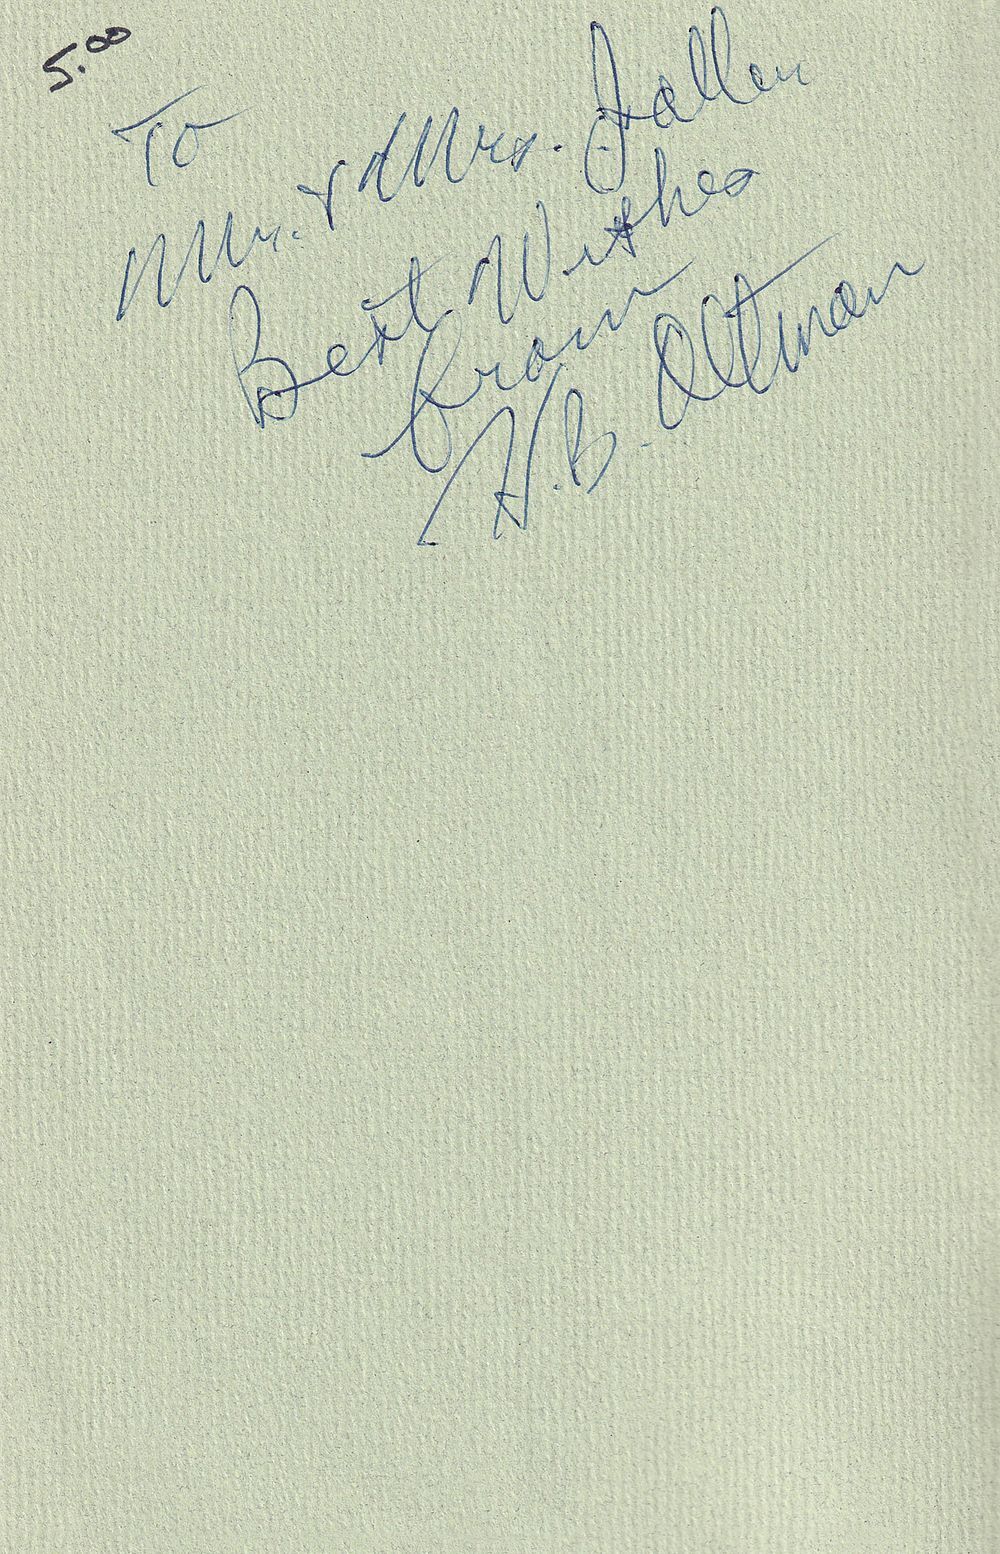 5.00
To
Mr. & Mrs. Fallen
Best Wishes
from
H.B. Altman